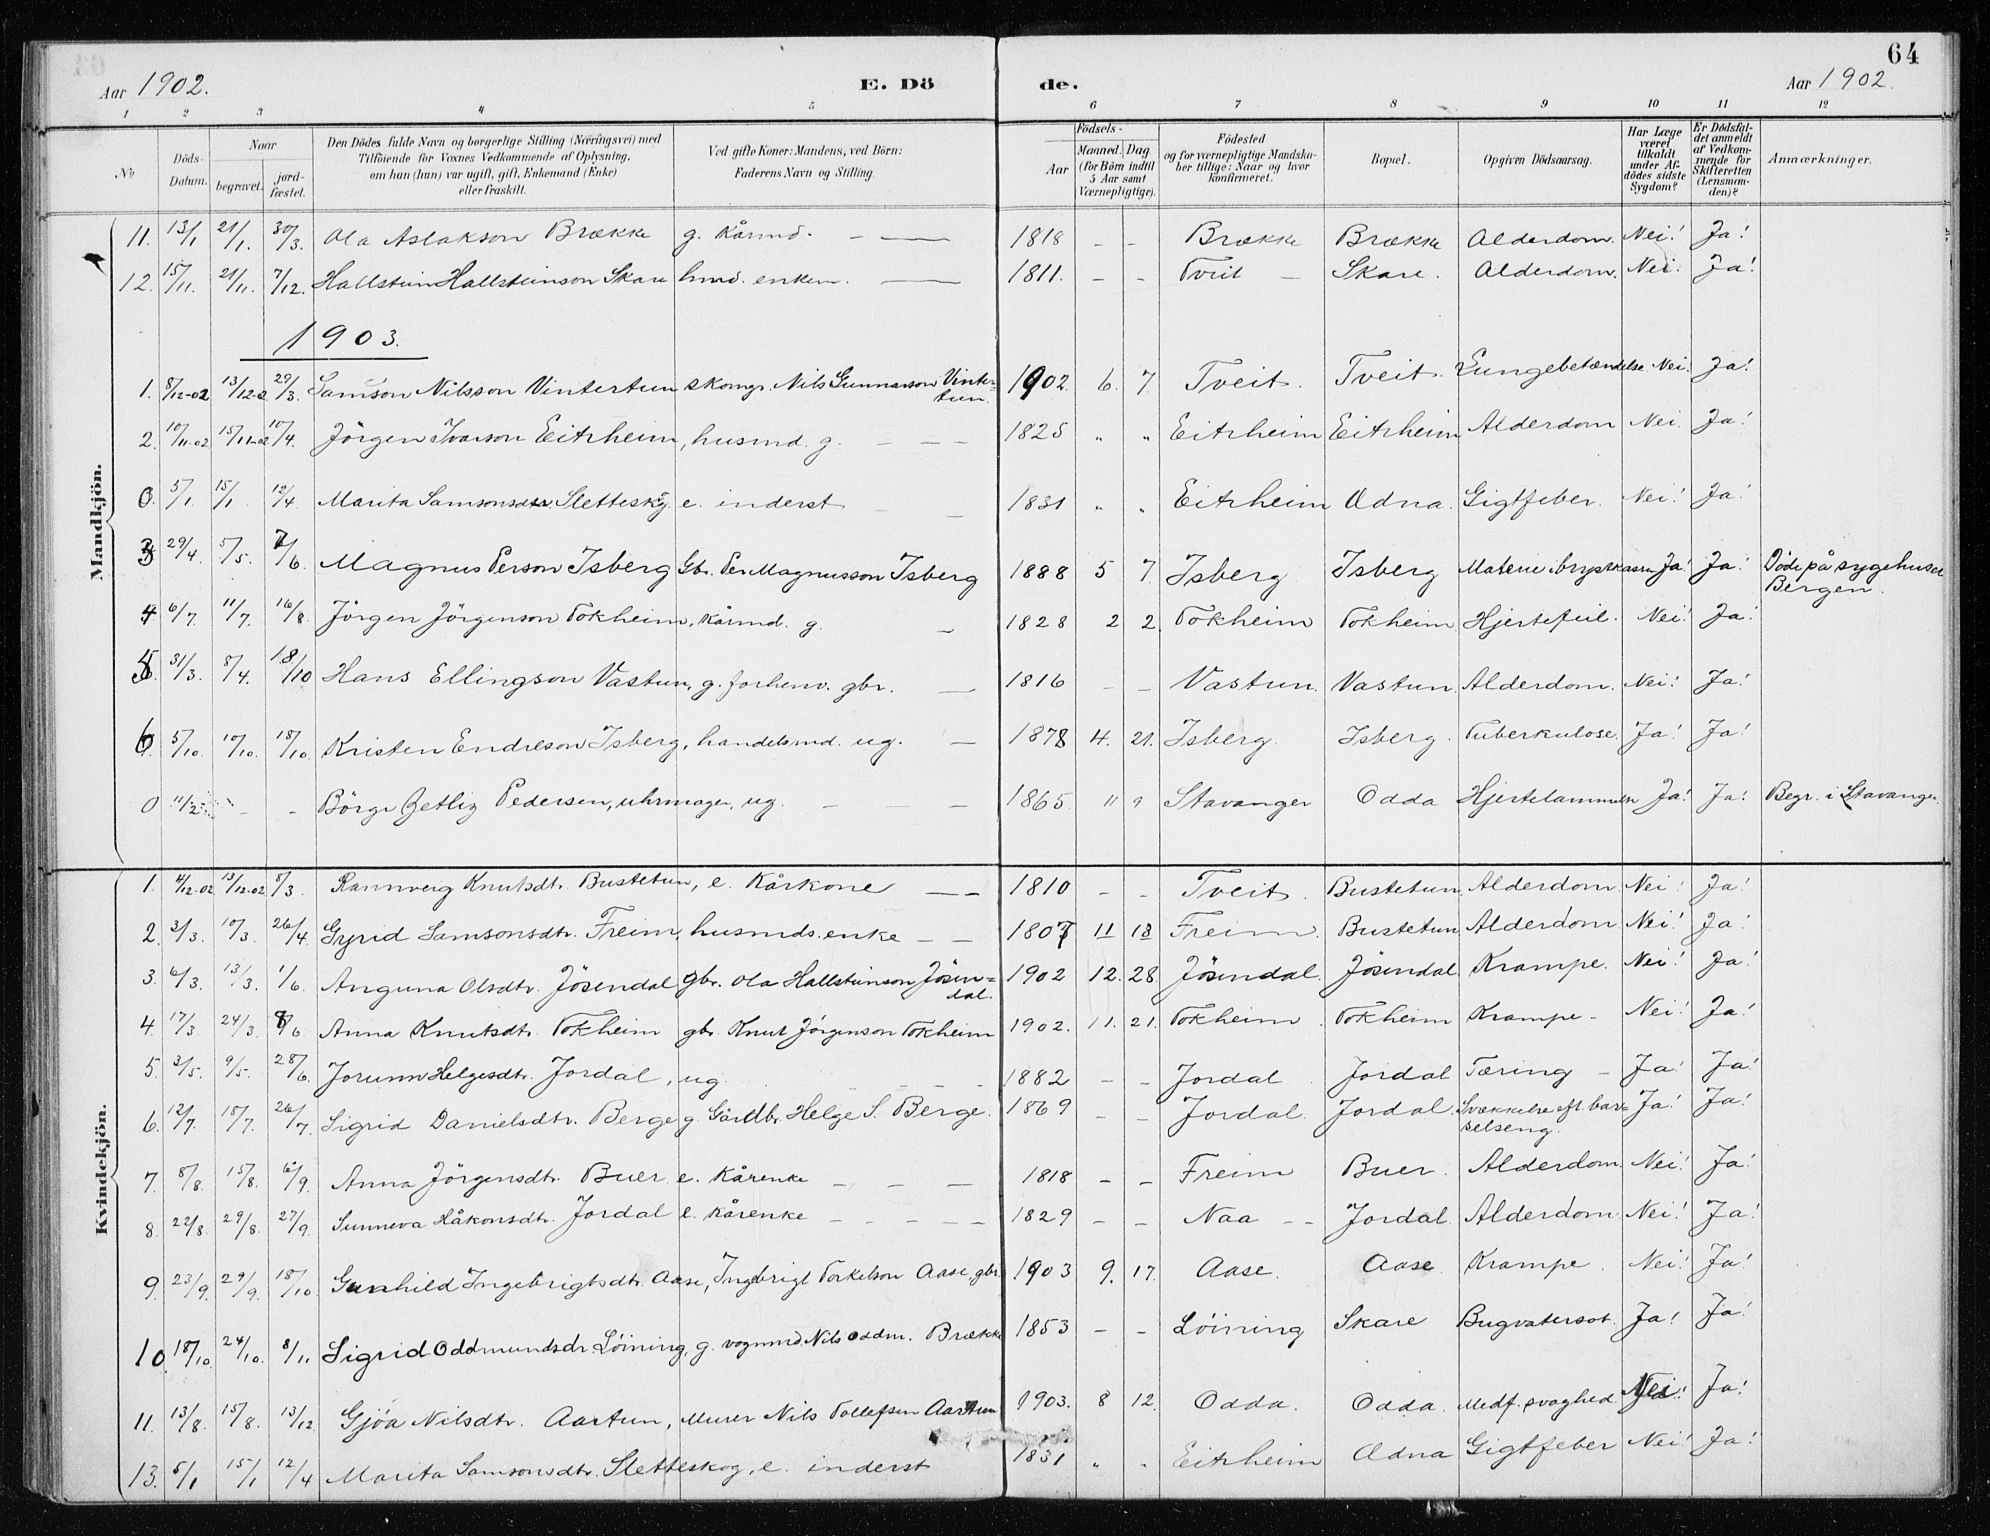 64
Aar 1902. E. Dö de. Aar 1902.
1 2 3 4 5 6 7 8 9 10 11 12
No Döds-Datum. Naar begravet. jord-fæstet. Den Dödes fulde Navn og borgerlige Stilling (Næringsvei) med Tilföiende for Voxnes Vedkommende af Oplysning, om han (hun) var ugift, gift, Enkemand (Enke) eller fraskilt. Ved gifte Koner: Mandens, ved Börn: Faderens Navn og Stilling. Födsels- Aar Maaned. Dag (for Börn indtil 5 Aar samt Værnepligtige). Födested og for værnepligtige Mandskaber tillige: Naar og hvor konfirmeret. Bopæl. Opgiven Dödsaarsag. Har Læge været tilkaldt under Afdödes sidste Sygdom? Er Dödsfaldet anmeldt af Vedkommende for Skifteretten (Lensmanden)? Anmærkninger.
Mandkjön.
11. 13/1 21/1. 30/3. Ola Aslakson Brække g. Kårmd. — — 1818 – – Brække Brække Alderdom. Nei! Ja!
12. 15/11. 21/11. 7/12. Hallstein Hallsteinson Skare hmd. enkem. — 1811. – – Tveit – Skare. Alderdom. Nei. Ja!
1903.
1. 8/12-02 13/12-02 29/3. Samson Nilsson Vintertun skomgr. Nils Gunnarson Vintertun. 1902. 6. 7. Tveit. Tveit. Lungebetændelse Nei. Ja!
2. 10/11-02 15/11-02 10/4. Jörgen Ivarson Eitrheim, husmd. g. – – – 1825 " " Eitrheim Eitrheim Alderdom Nei. Ja!
0. 5/1. 15/1. 12/4. Marita Samsonsdtr. Sletteskg. e. inderst – – 1831 " " Eitrheim Ædna. Gigtfeber. Nei! Ja!
3 29/4. 5/5. 7/6. Magnus Person Isberg Gbr. Per Magnusson Isberg 1888 5 7. Isberg Isberg Materie i brystkassen Ja! Ja! Döde på sygehuset Bergen.
4 6/7. 11/7. 16/8. Jörgen Jörgenson Tokheim, kårmd. g. – 1828 2 2. Tokheim Tokheim Hjertefeil. Nei! Ja!
5. 31/3. 8/4. 18/10 Hans Ellingson Vastun, g. forhenv. gbr. – 1816 – – Vastun. Vastun. Alderdom. Nei! Ja!
6. 5/10. 10/10. 18/10. Kristen Endreson Isberg, handelsmd. ug. – 1878 4. 21. Isberg. Isberg. Tuberkulose. Ja! Ja!
0 11/2 – – Börge Zetliz Pedersen, uhrmager, ug. – – 1865. 11 9 Stavanger Odda Hjertelammelse Ja! Ja! Begr. i Stavanger.
Kvindekjön.
1. 4/12-02 13/12-02 8/3. Rannveig Knutsdtr. Bustetun, e. Kårkone – – 1810 – – Tveit. Bustetun. Alderdom. Nei! Ja!
2. 3/3. 10/3. 26/4. Gyrid Samsonsdtr. Freim, husmds. enke – – 1807 11 13 Freim. Bustetun Alderdom Nei! Ja!
3. 6/3. 13/3. 1/6. Anguna Olsdtr. Jösendal gbr. Ola Hallsteinson Jösendal. 1902 12. 28. Jösendal. Jösendal. Krampe. Nei! Ja!
4. 17/3. 24/3. 8/6 Anna Knutsdtr. Tokheim gbr. Knut Jörgenson Tokheim 1902. 11. 21. Tokheim. Tokheim Krampe – Nei! Ja!
5. 3/5. 9/5. 28/6. Jorunn Helgesdtr. Jordal, ug. – – – 1882 – – Jordal Jordal Tæring – Ja! Ja!
6. 12/7. 18/7. 26/7. Sigrid Danielsdtr. Berge g. Gårdbr. Helge S. Berge. 1869 – – Jordal. Jordal. Svækkelse eft. barselseng. Ja! Ja!
7. 8/8. 15/8. 6/9. Anna Jörgensdtr. Buer e. Kårenke – – – 1818 – – Freim Buer. Alderdom. Nei! Ja!
8. 22/8. 29/8. 27/9. Sunneva Håkonsdtr. Jordal e. Kårenke – – – – 1829 – – Naa – – Jordal. Alderdom. Nei! Ja!
9. 23/9. 29/9. 18/10. Gunhild Ingebrigtsdtr. Aase, Ingebrigt Torkelson Aase, gbr. 1903 9. 17. Aase. Aase. Krampe. Nei! Ja!
10. 18/10. 24/10. 8/11 Sigrid Oddmundsdr. Löining, g. vognmd. Nils Oddm. Brække 1853 – – Löining Skare Bugvatersot. Ja! Ja!
11. 13/8. 15/8. 13/12 Gjöa Nilsdtr. Aartun, Murer Nils Tollefsen Aartun 1903. 8 12. Odda. Odda. Medf. svaghed. Nei! Ja!
13. 5/1 15/1 12/4 Marita Samsonsdtr. Sletteskog, e. inderst 1831 " " Eitrheim Ædna Gigtfeber Nei! Ja!